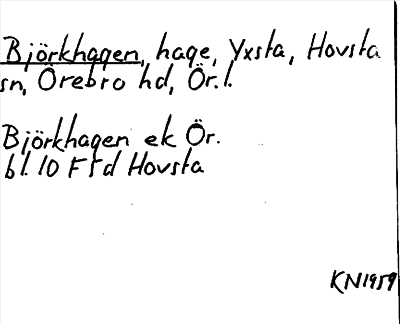 Björkhagen, hage, Yxsta, Hovsta
sn, Örebro hd, Ör. l.
Björkhagen ek Ör.
bl. 10 F 5 d Hovsta
KN1959